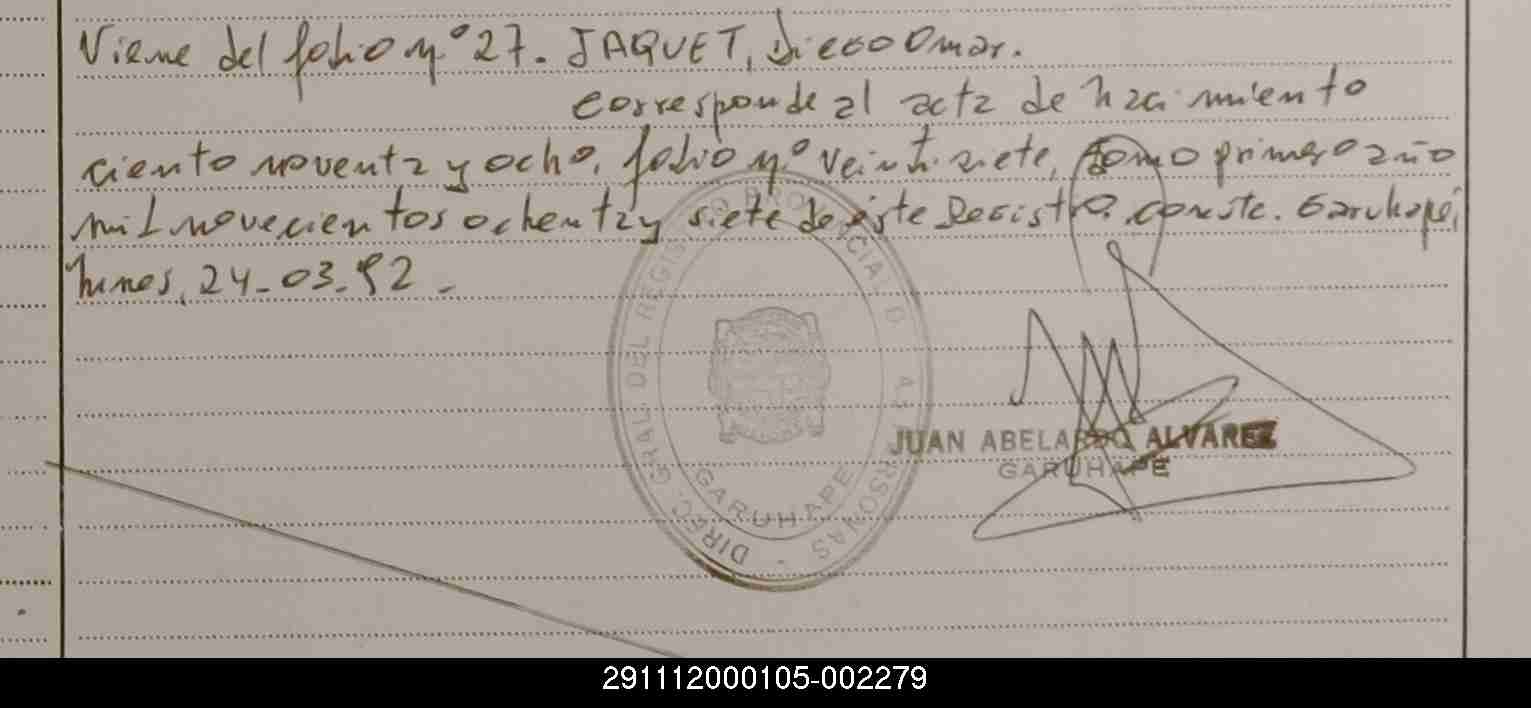 Viene del folio nº 27. JAQUET, Diego Omar.
corresponde al acta de nacimiento
ciento noventa y ocho, folio nº veintisiete, tomo primero año
mil novecientos ochenta y siete de éste Registro. conste. Garuhapé,
Mnes, 24-03-92-
DIREC. GRAL. DEL REGISTRO PROVINCIAL D AS RSONAS -
GARUHAPE
JUAN ABELARDO ALVAREZ
GARUHAPE
291112000105-002279